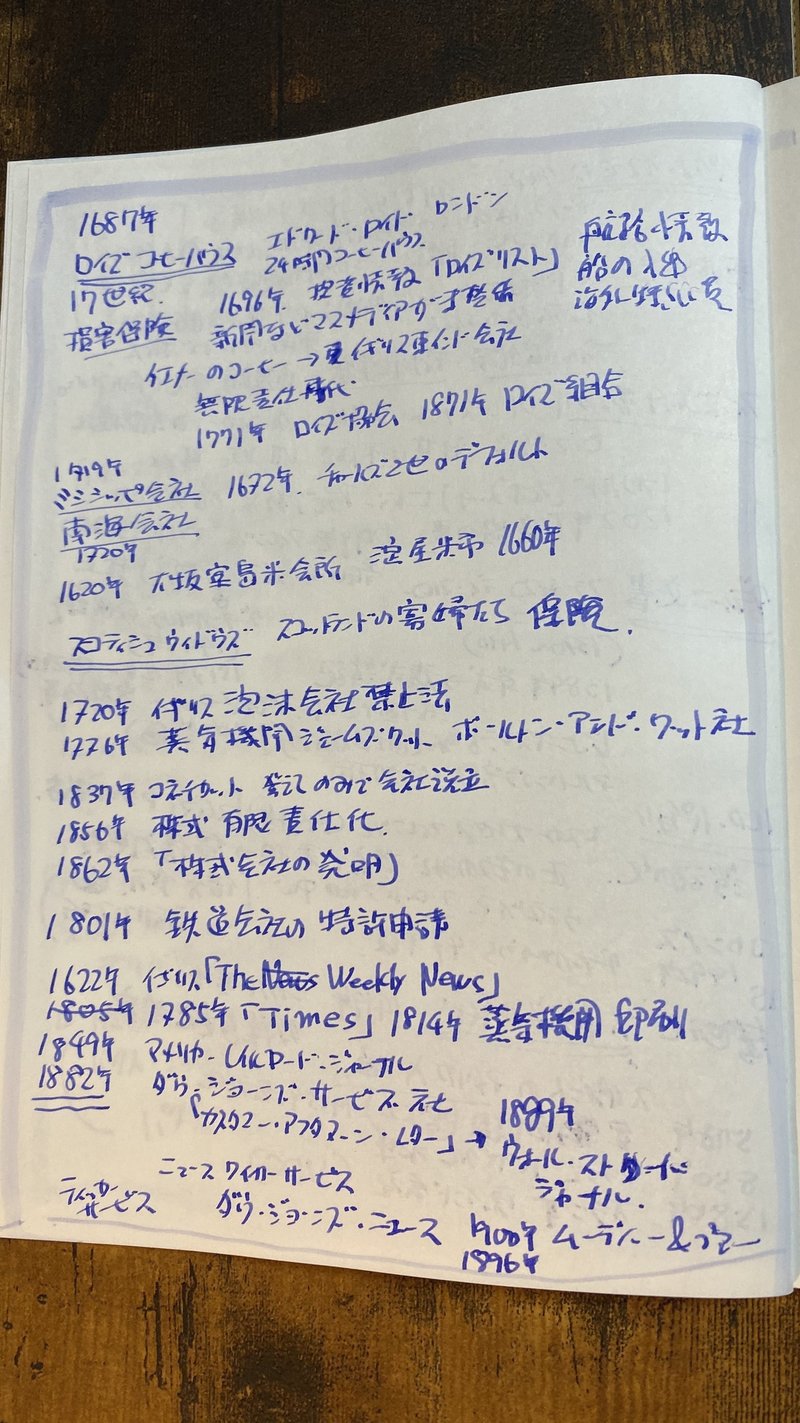 1687年
ロイズコーヒーハウス エドワード・ロイド ロンドン
24時間コーヒーハウス
17世紀 1696年 投資情報「ロイズリスト」 船の入出
損害保険 新聞などマスメディアが未発達 海外
イエメンのコーヒー→イギリス東インド会社
無限責任時代
1771年 ロイズ協会 1871年 ロイズ組合
1719年
ミシシッピ会社 1672年 チャールズ2世のデフォルト
南海会社
1720年
1620年 大坂堂島米会所 淀屋米市 1660年
スコティシュウィドウズ スコットランドの寡婦たち 保険.
1720年 イギリス 泡沫会社禁止法
1776年 蒸気機関 ジェームズワット ボールトン・アンド・ワット社
1837年 コネチカット 登記のみで会社設立
1856年 株式 有限責任化.
1862年 「株式会社の発明」
1801年 鉄道会社の特許申請
1622年 イギリス「The News Weekly News」
1805年 1785年「Times」 1814年 蒸気機関 印刷
1849年 アメリカ・レイルロード・ジャーナル
1882年 ダウ・ジョーンズ・サービス社
「カスタマー・アフタヌーン・レター」→ 1889年
ウォール・ストリート
ジャーナル.
ティッカーサービス ニュースワイヤーサービス
ダウ・ジョーンズ・ニュース 1900年 ムーディー&プアー
1896年